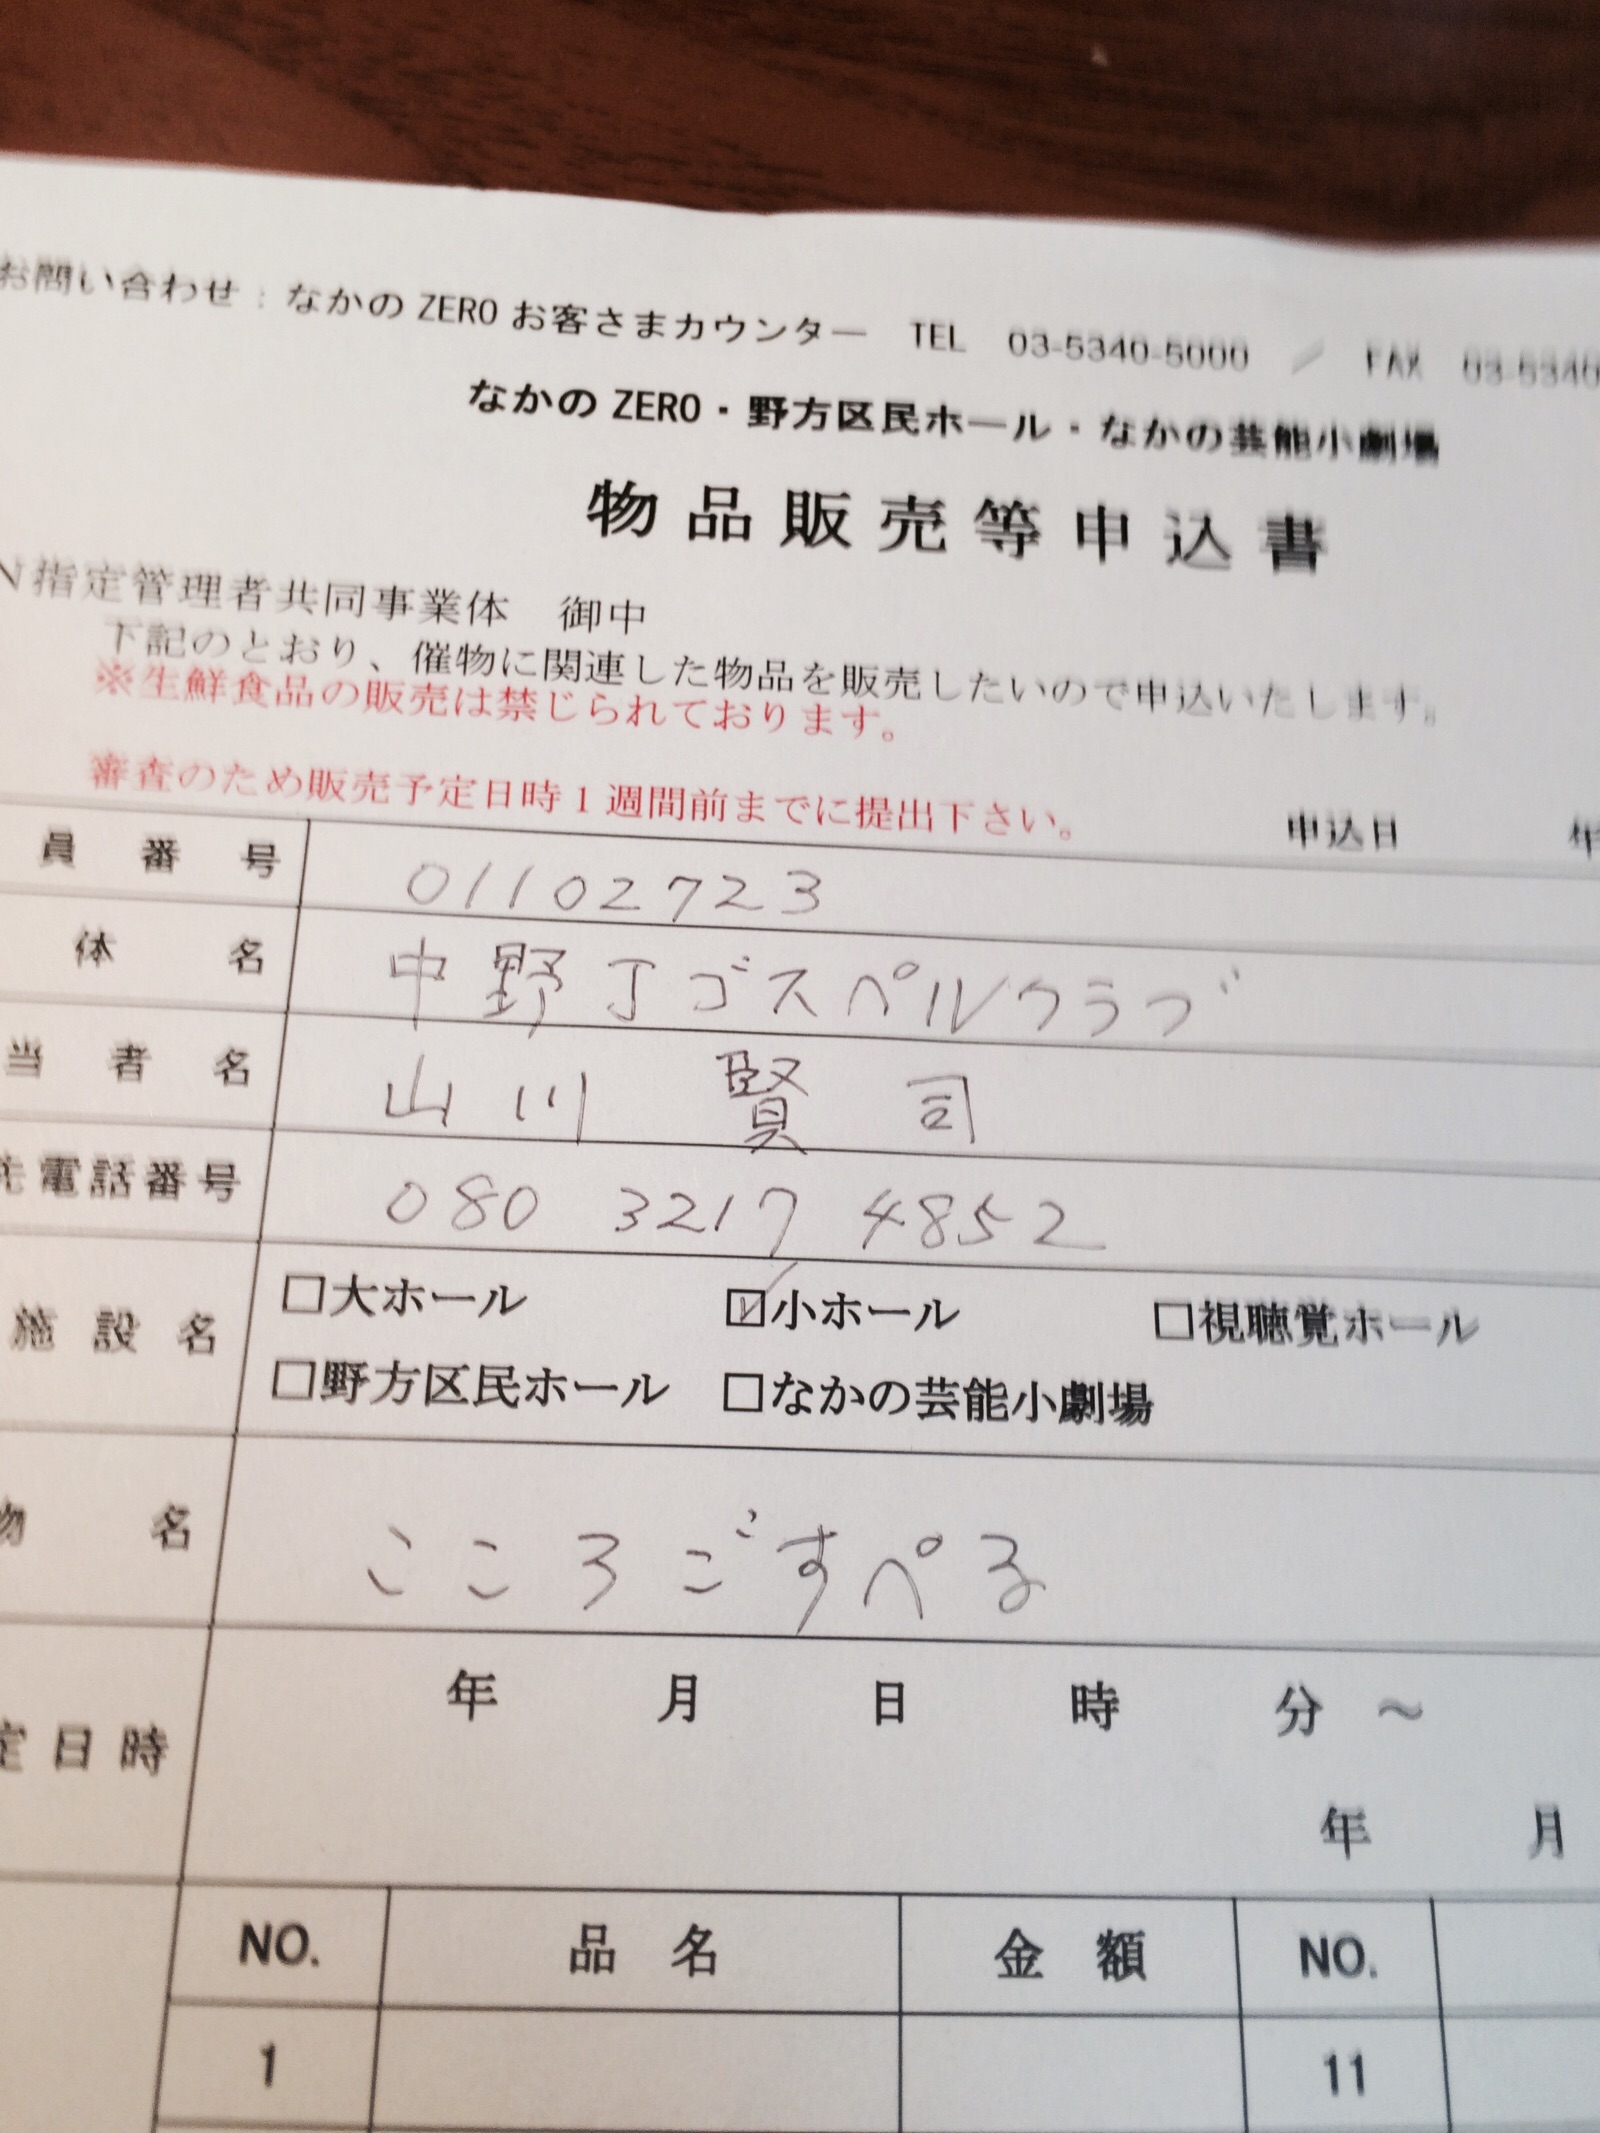 お問い合わせ：なかのZERO お客さまカウンター　TEL　03-5340-5000　／　FAX　03-5340
なかのZERO・野方区民ホール・なかの芸能小劇場
物品販売等申込書
N指定管理者共同事業体　御中
下記のとおり、催物に関連した物品を販売したいので申込いたします。
※生鮮食品の販売は禁じられております。
審査のため販売予定日時1週間前までに提出下さい。
申込日　年
員番号　01102723
体名　中野Jゴスペルクラブ
当者名　山川　賢司
先電話番号　080　3217　4852
施設名　□大ホール　☑小ホール　□視聴覚ホール
□野方区民ホール　□なかの芸能小劇場
物名　こころごすぺる
年　月　日　時　分　～
定日時
年　月
NO.　品名　金額　NO.
1　11